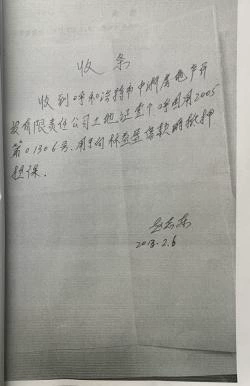 收条
收到呼和浩特市中洲房地产开
发有限责任公司土地证壹个呼国用2005
第01306号.用于向林
借款时抵押
担保.
2013.2.6